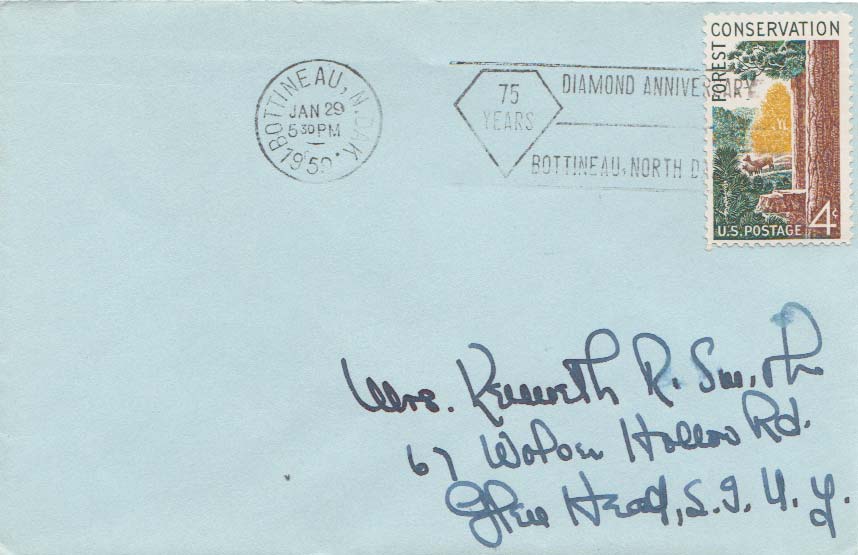 BOTTINEAU, N. DAK.
JAN 29
5 30 PM
1959
75
YEARS
DIAMOND ANNIVERSARY
BOTTINEAU, NORTH D
FOREST
CONSERVATION
U.S. POSTAGE
4¢
Mrs. Kenneth R. Smith
67 Hollow Rd.
Glen Head, L.I. N.Y.